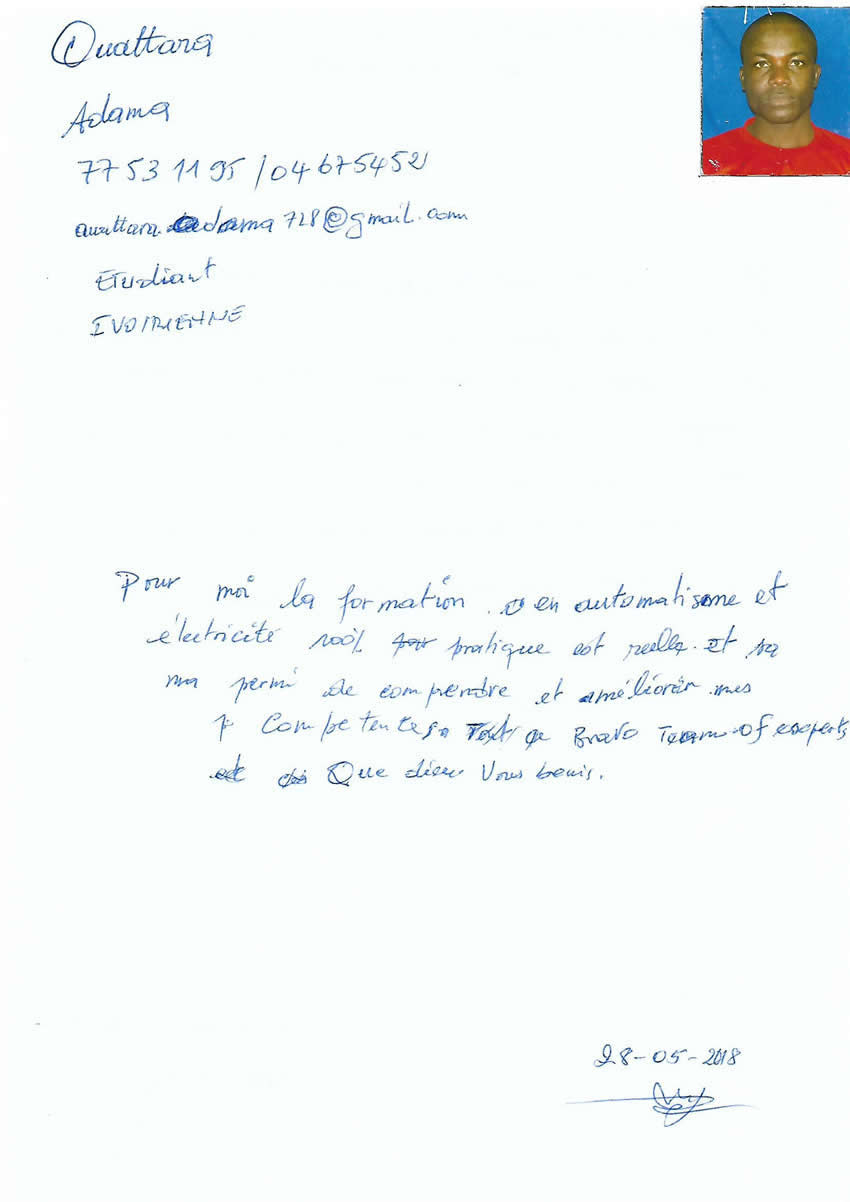 Ouattara
Adama
77 53 11 95 / 04 67 54 52
ouattara adama 728@gmail.com
Etudiant
IVOIRIENNE
Pour moi la formation en automatisme et
électricité 100% pratique est reelle. Et sa
ma permi de comprendre et améliorer mes
competences Bravo Team of experts
Que dieu Vous benis.
28-05-2018